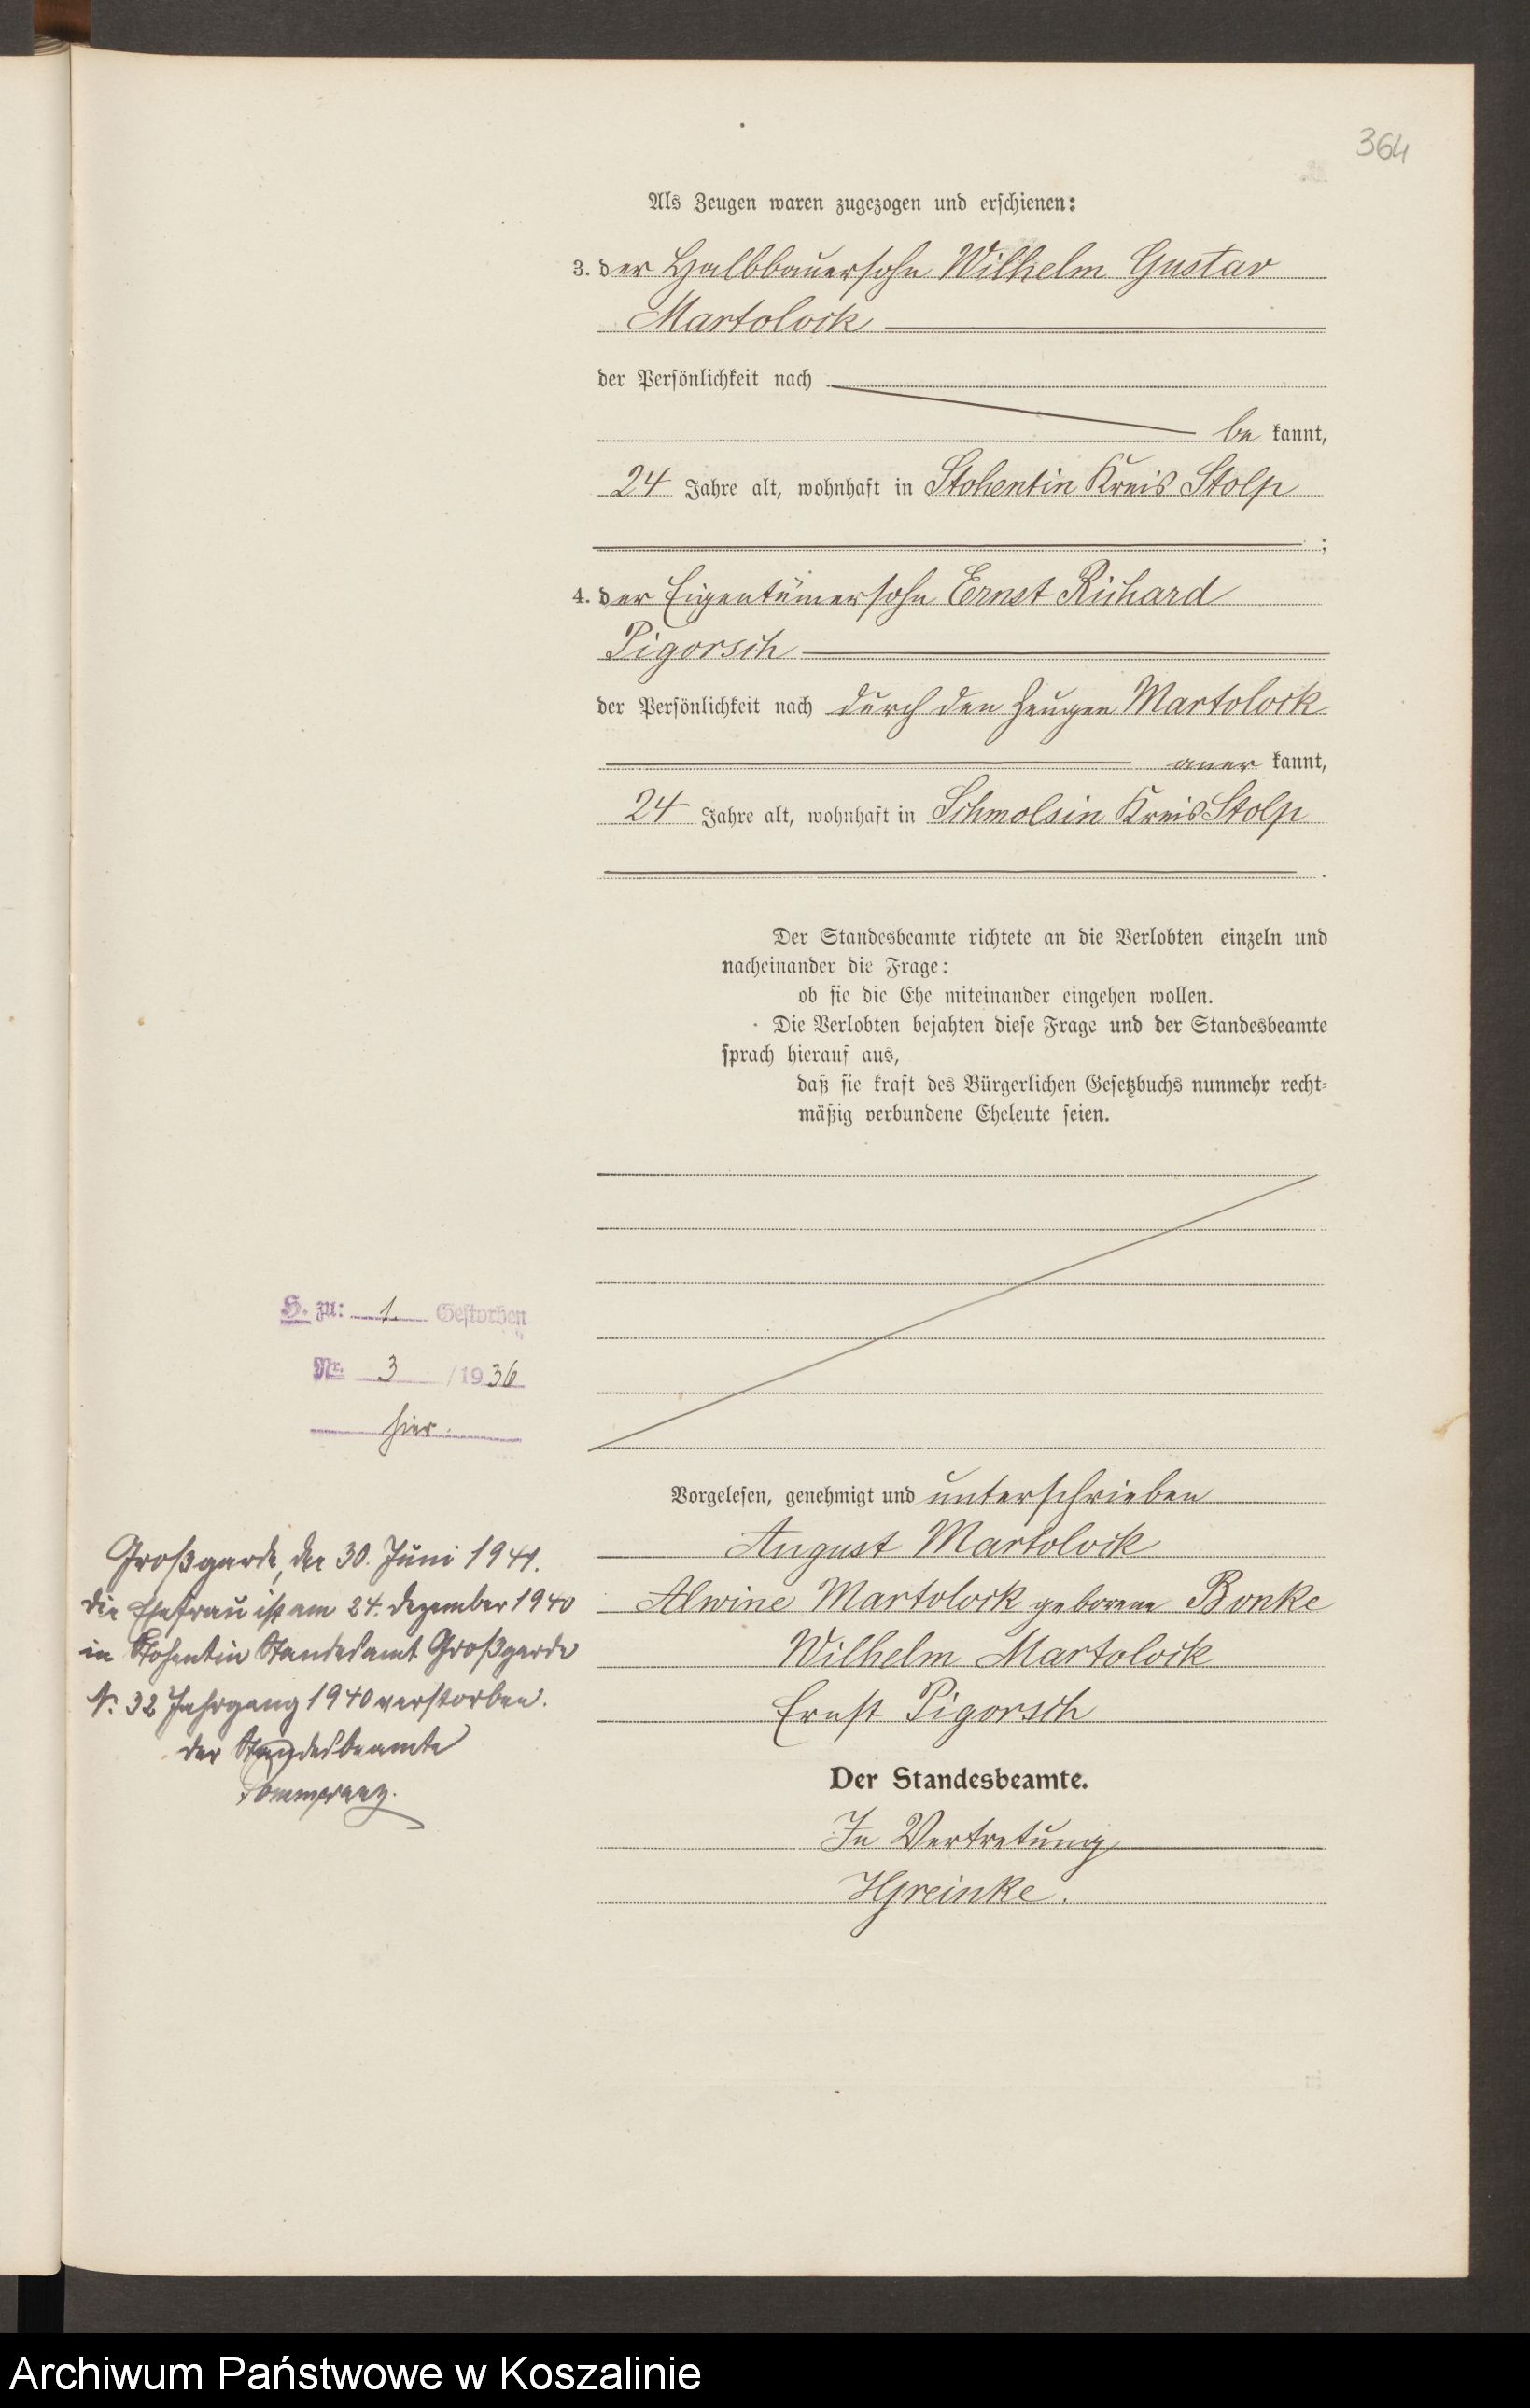 364
Als Zeugen waren zugezogen und erschienen:
3. der Halbbauersohn Wilhelm Gustav
Martolock
der Persönlichkeit nach
be kannt,
24 Jahre alt, wohnhaft in Stohentin Kreis Stolp
;
4. der Eigentümersohn Ernst Richard
Pigorsch
der Persönlichkeit nach durch den Zeugen Martolock
aner kannt,
24 Jahre alt, wohnhaft in Schmolsin Kreis Stolp
.
Der Standesbeamte richtete an die Verlobten einzeln und
nacheinander die Frage:
ob sie die Ehe miteinander eingehen wollen.
Die Verlobten bejahten diese Frage und der Standesbeamte
sprach hierauf aus,
daß sie kraft des Bürgerlichen Gesetzbuchs nunmehr recht-
mäßig verbundene Eheleute seien.
H. zu: 1. Gestorben
Nr. 3 /1936
hier.
Vorgelesen, genehmigt und unterschrieben
August Martolock
Alwine Martolock geborene Bonke
Wilhelm Martolock
Ernst Pigorsch
Der Standesbeamte.
In Vertretung
HGreinke.
Großgarde, den 30. Juni 1941.
Die Ehefrau ist am 24. Dezember 1940
in Stohentin Standesamt Großgarde
Nr. 32 Jahrgang 1940 verstorben.
Der Standesbeamte
Pommerenz.
Archiwum Państwowe w Koszalinie